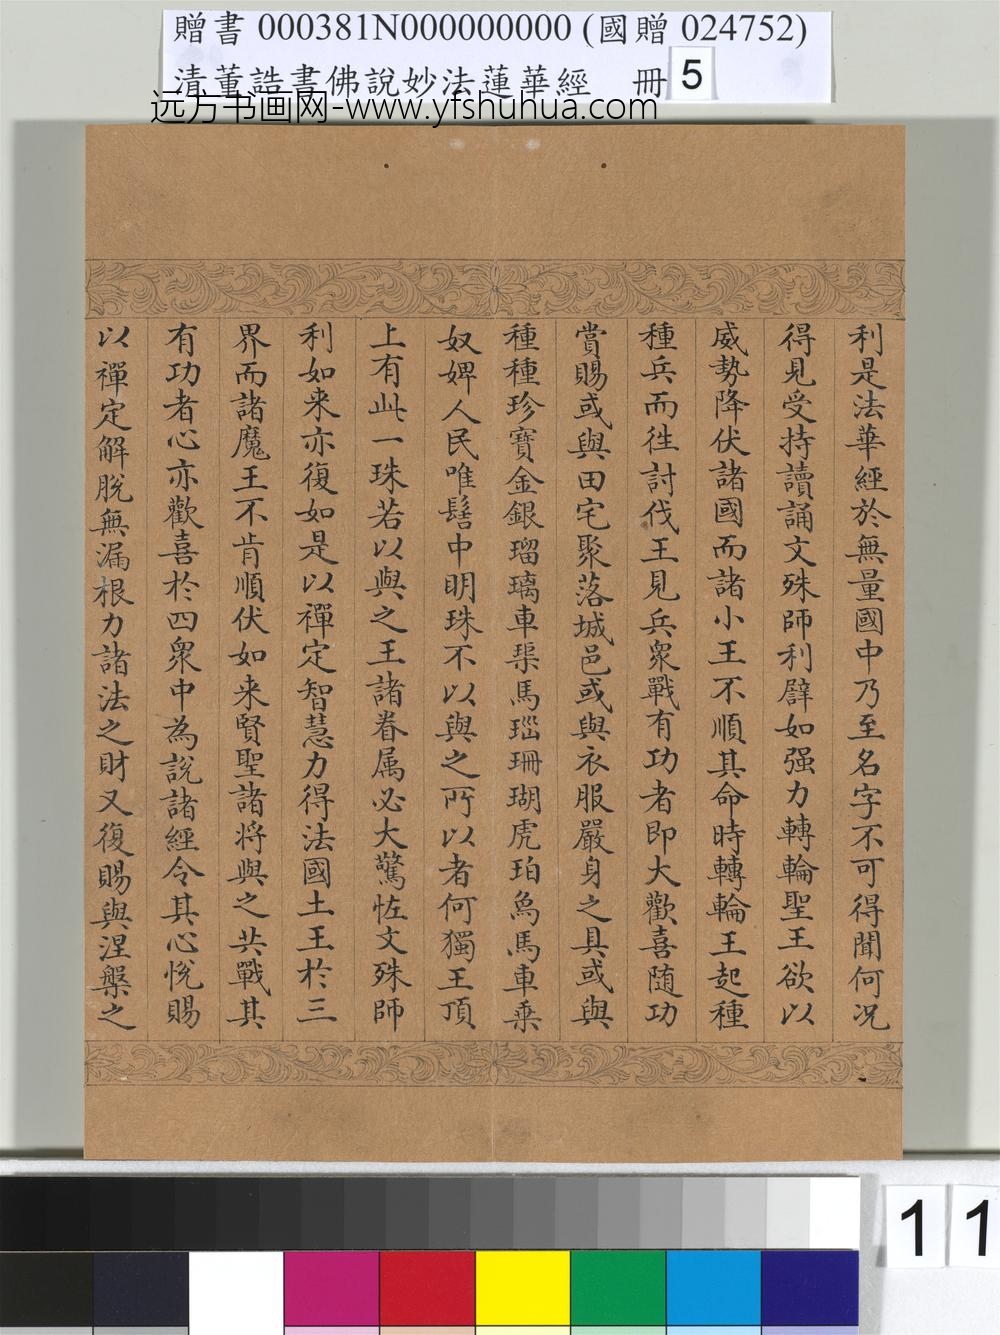 贈書 000381N000000000 (國贈 024752)
清董誥書佛說妙法蓮華經 冊 5
远方书画网-www.yfshuhua.com
利是法華經於無量國中乃至名字不可得聞何況
得見受持讀誦文殊師利譬如强力轉輪聖王欲以
威勢降伏諸國而諸小王不順其命時轉輪王起種
種兵而往討伐王見兵衆戰有功者即大歡喜随功
賞賜或與田宅聚落城邑或與衣服嚴身之具或與
種種珍寶金銀瑠璃車璖馬瑙珊瑚虎珀象馬車乗
奴婢人民唯髻中明珠不以與之所以者何獨王頂
上有此一珠若以與之王諸眷属必大驚恠文殊師
利如来亦復如是以禪定智慧力得法國土王於三
界而諸魔王不肯順伏如来賢聖諸将與之共戰其
有功者心亦歡喜於四衆中為說諸經令其心悅賜
以禪定解脫無漏根力諸法之財又復賜與涅槃之
11